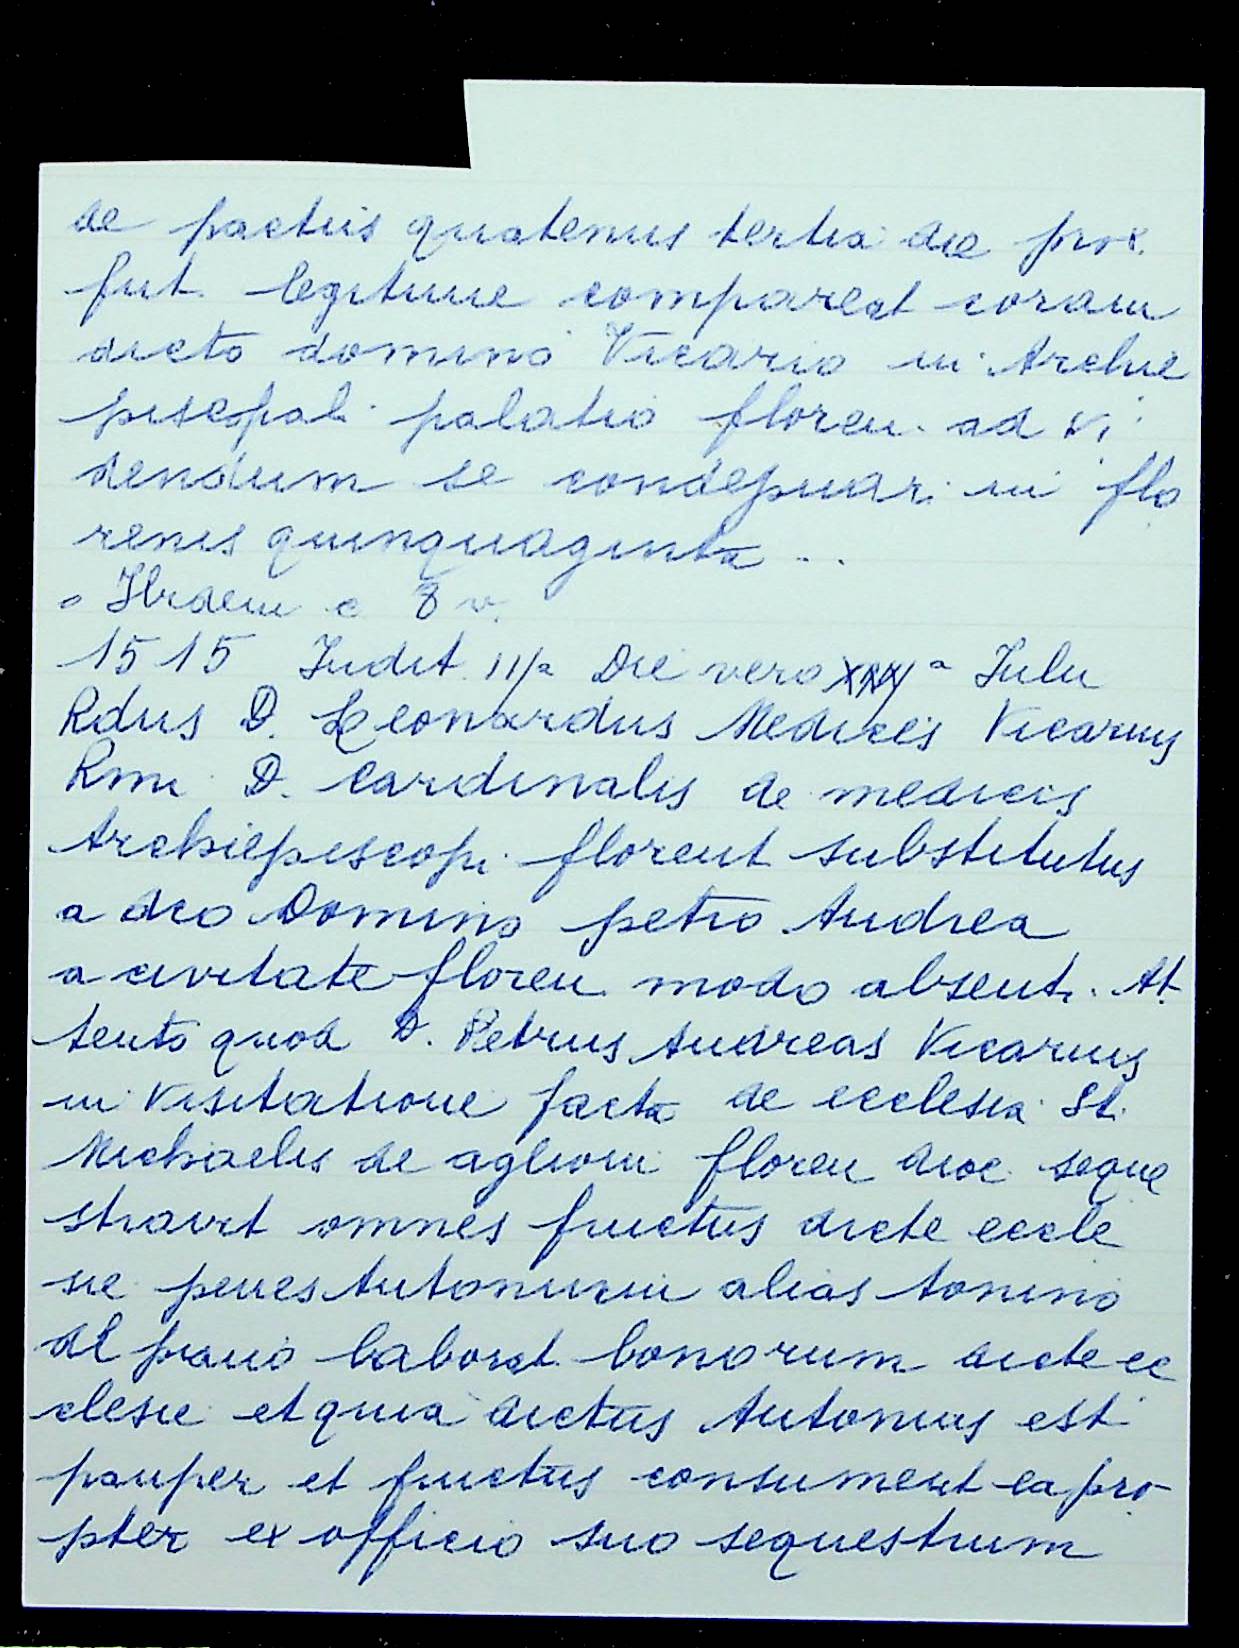 de pactiis quatenus tertia die prox.
fut. legitime compareat coram
dicto domino Vicario in Archie
piscopali palatio floren. ad vi
dendum se condepnari in flo
renis quinquaginta ...
Ibidem c 8 v.
1515 Indit. IIIa Die vero Iulii
Rdus D. Leonardus Medices Vicarius
Rmi D. Cardinalis de medicis
Archiepiscopi florent substitutus
a dco Domino petro Andrea
a civitate floren modo absenti. At
tento quod D. Petrus Andreas Vicarius
in Visitatione facta de ecclesia St.
Michaelis de aglioni floren dioc. seque
stravit omnes fructus dicte eccle
sie penes Antonium alias tonino
del prano laborat. bonorum dicte ec
clesie et quia dictus Antonius est
pauper et fructus consument ea pro-
pter ex officio suo sequestrum